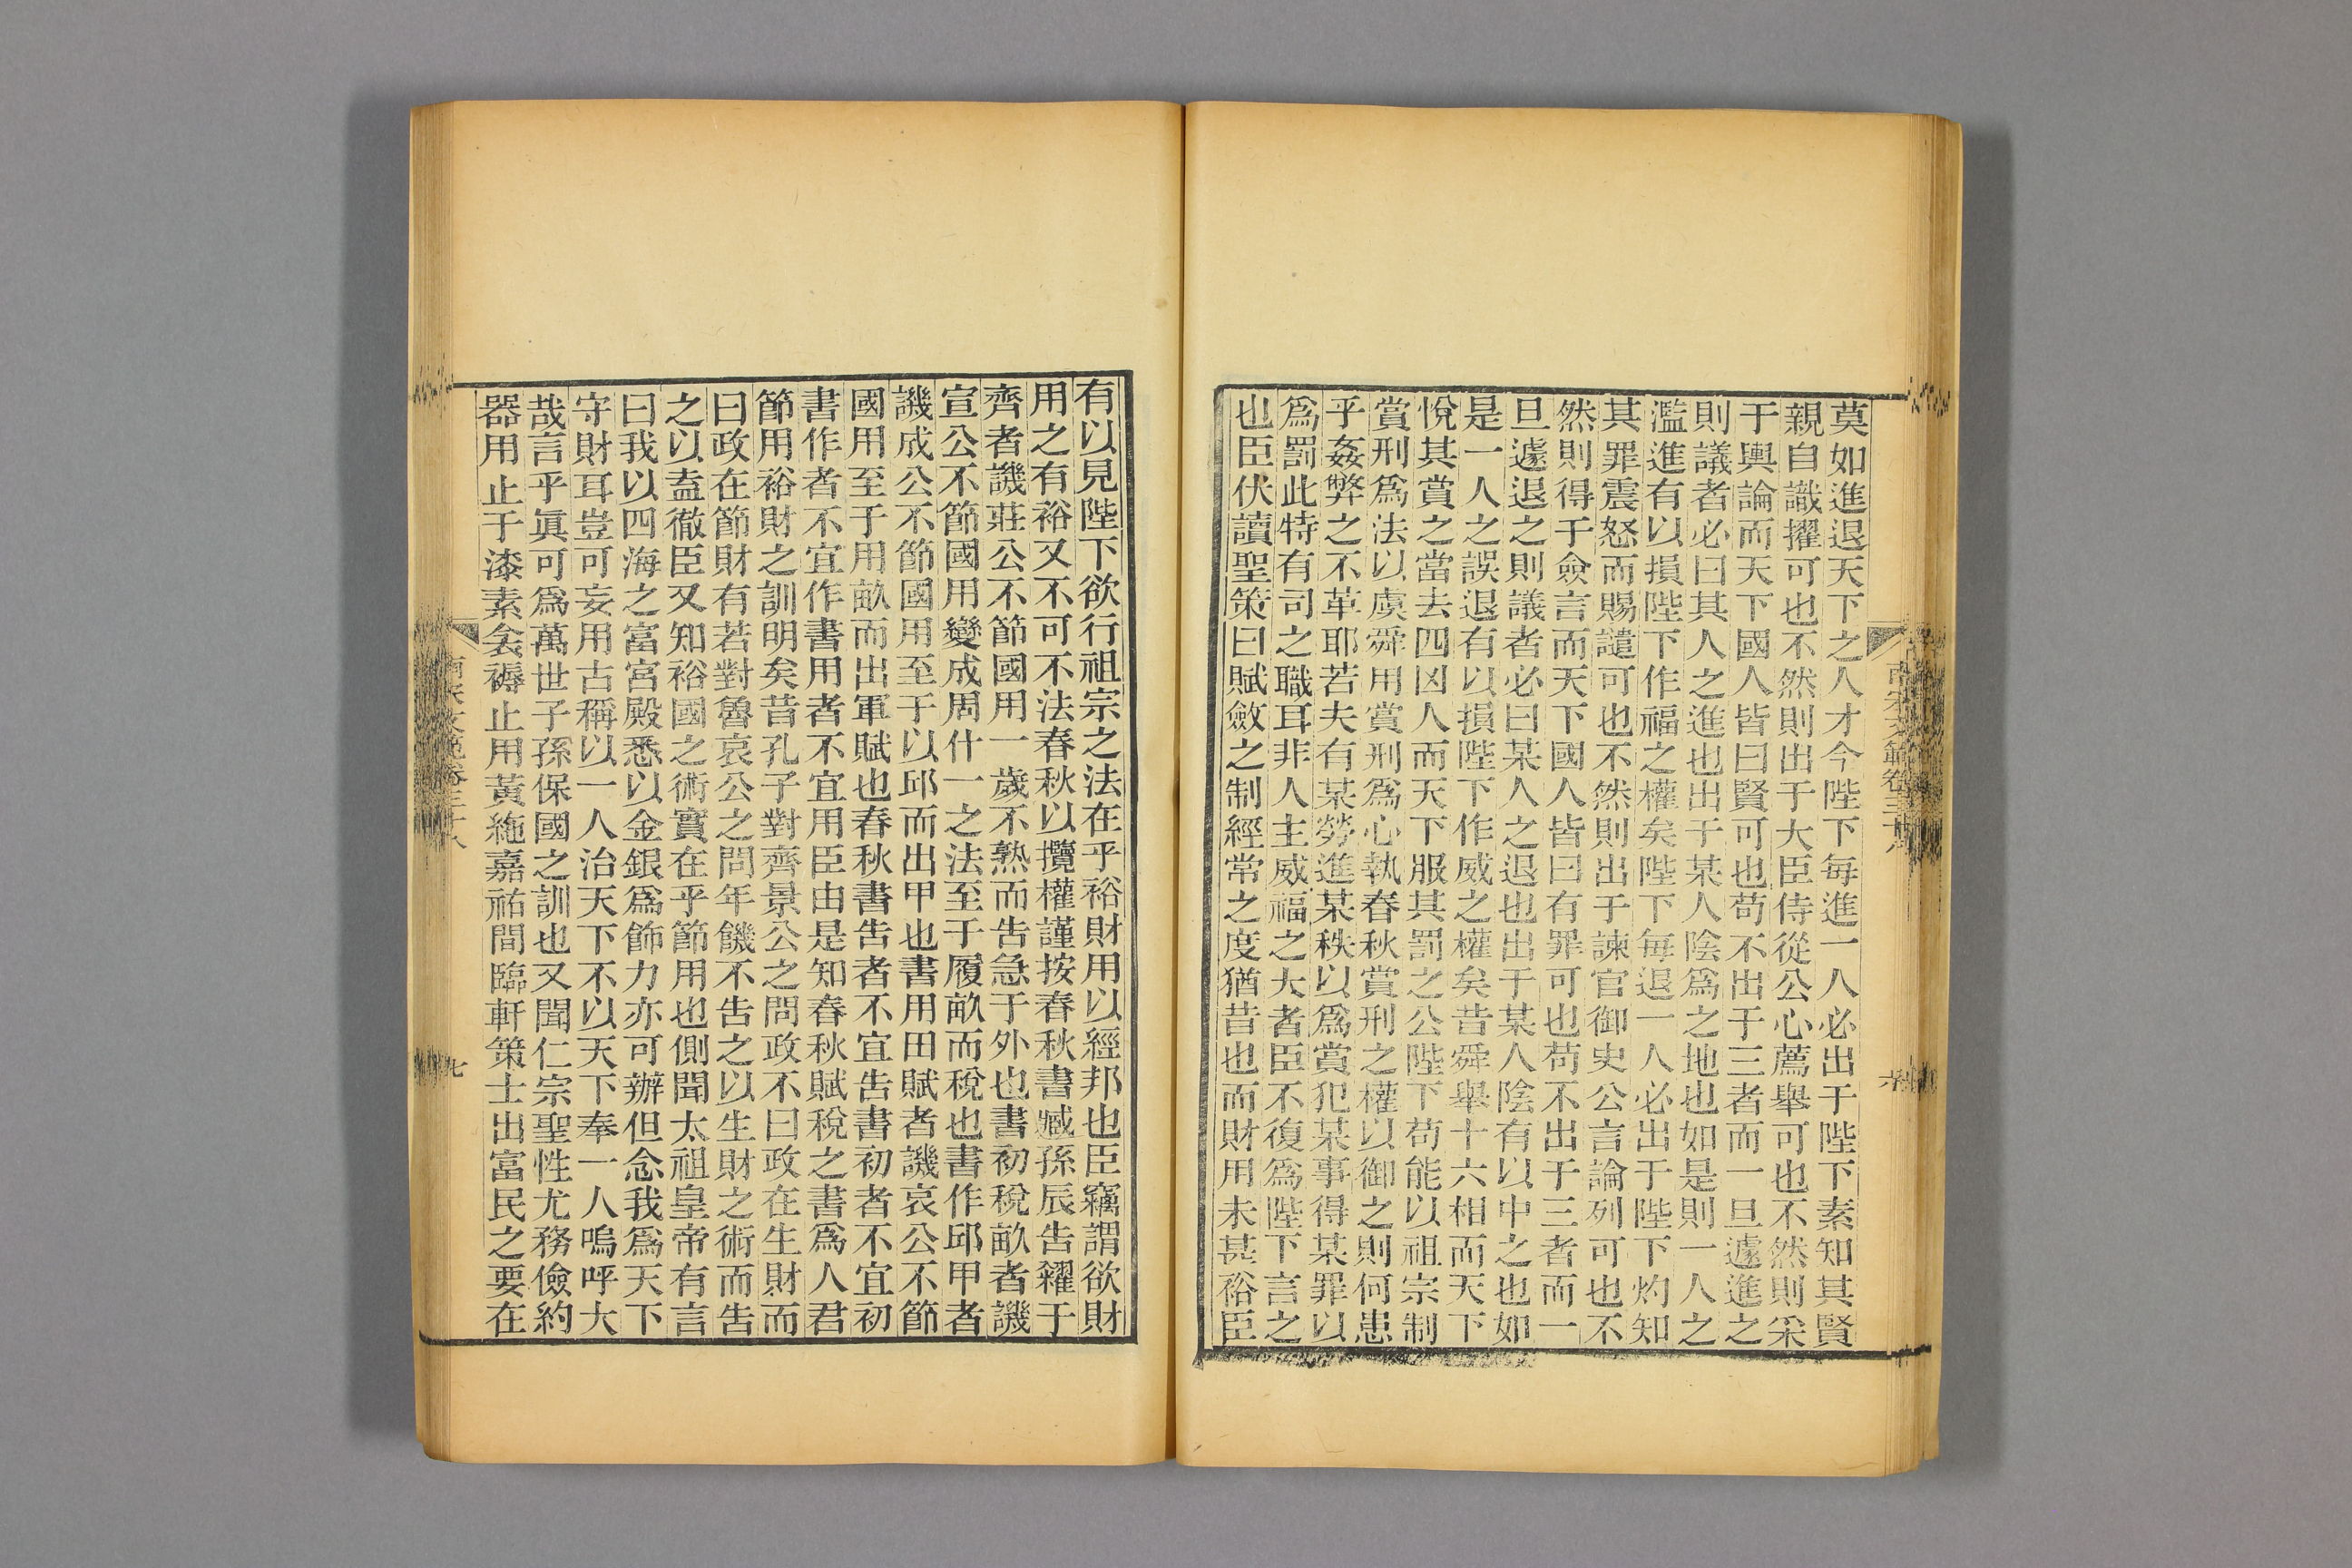 莫如進退天下之人才今陛下每進一人必出于陛下素知其賢
親自識擢可也不然則出于大臣侍從公心薦舉可也不然則采
于輿論而天下國人皆曰賢可也苟不出于三者而一旦遽進之
則議者必曰其人之進也出于某人陰爲之地也如是則一人之
濫進有以損陛下作福之權矣陛下每退一人必出于陛下灼知
其罪震怒而賜譴可也不然則出于諫官御史公言論列可也不
然則得于僉言而天下國人皆曰有罪可也苟不出于三者而一
旦遽退之則議者必曰某人之退也出于某人陰有以中之也如
是一人之誤退有以損陛下作威之權矣昔舜舉十六相而天下
悅其賞之當去四凶人而天下服其罰之公陛下苟能以祖宗制
賞刑爲法以虞舜用賞刑爲心執春秋賞刑之權以御之則何患
乎姦弊之不革耶若夫有某勞進某秩以爲賞犯某事得某罪以
爲罰此特有司之職耳非人主威福之大者臣不復爲陛下言之
也臣伏讀聖策曰賦斂之制經常之度猶昔也而財用未甚裕臣
南宋文範卷三十八
有以見陛下欲行祖宗之法在乎裕財用以經邦也臣竊謂欲財
用之有裕又不可不法春秋以攬權謹按春秋書臧孫辰告糴于
齊者譏莊公不節國用一歲不熟而告急于外也書初稅畝者譏
宣公不節國用變成周什一之法至于履畝而稅也書作邱甲者
譏成公不節國用至于以邱而出甲也書用田賦者譏哀公不節
國用至于用畝而出軍賦也春秋書告者不宜告書初者不宜初
書作者不宜作書用者不宜用臣由是知春秋賦稅之書爲人君
節用裕財之訓明矣昔孔子對齊景公之問政不曰政在生財而
曰政在節財有若對魯哀公之問年饑不告之以生財之術而告
之以盍徹臣又知裕國之術實在乎節用也側聞太祖皇帝有言
曰我以四海之富宮殿悉以金銀爲飾力亦可辦但念我爲天下
守財耳豈可妄用古稱以一人治天下不以天下奉一人嗚呼大
哉言乎眞可爲萬世子孫保國之訓也又聞仁宗聖性尤務儉約
器用止于漆素衾褥止用黃絁嘉祐間臨軒策士出富民之要在
南宋文範卷三十八
七